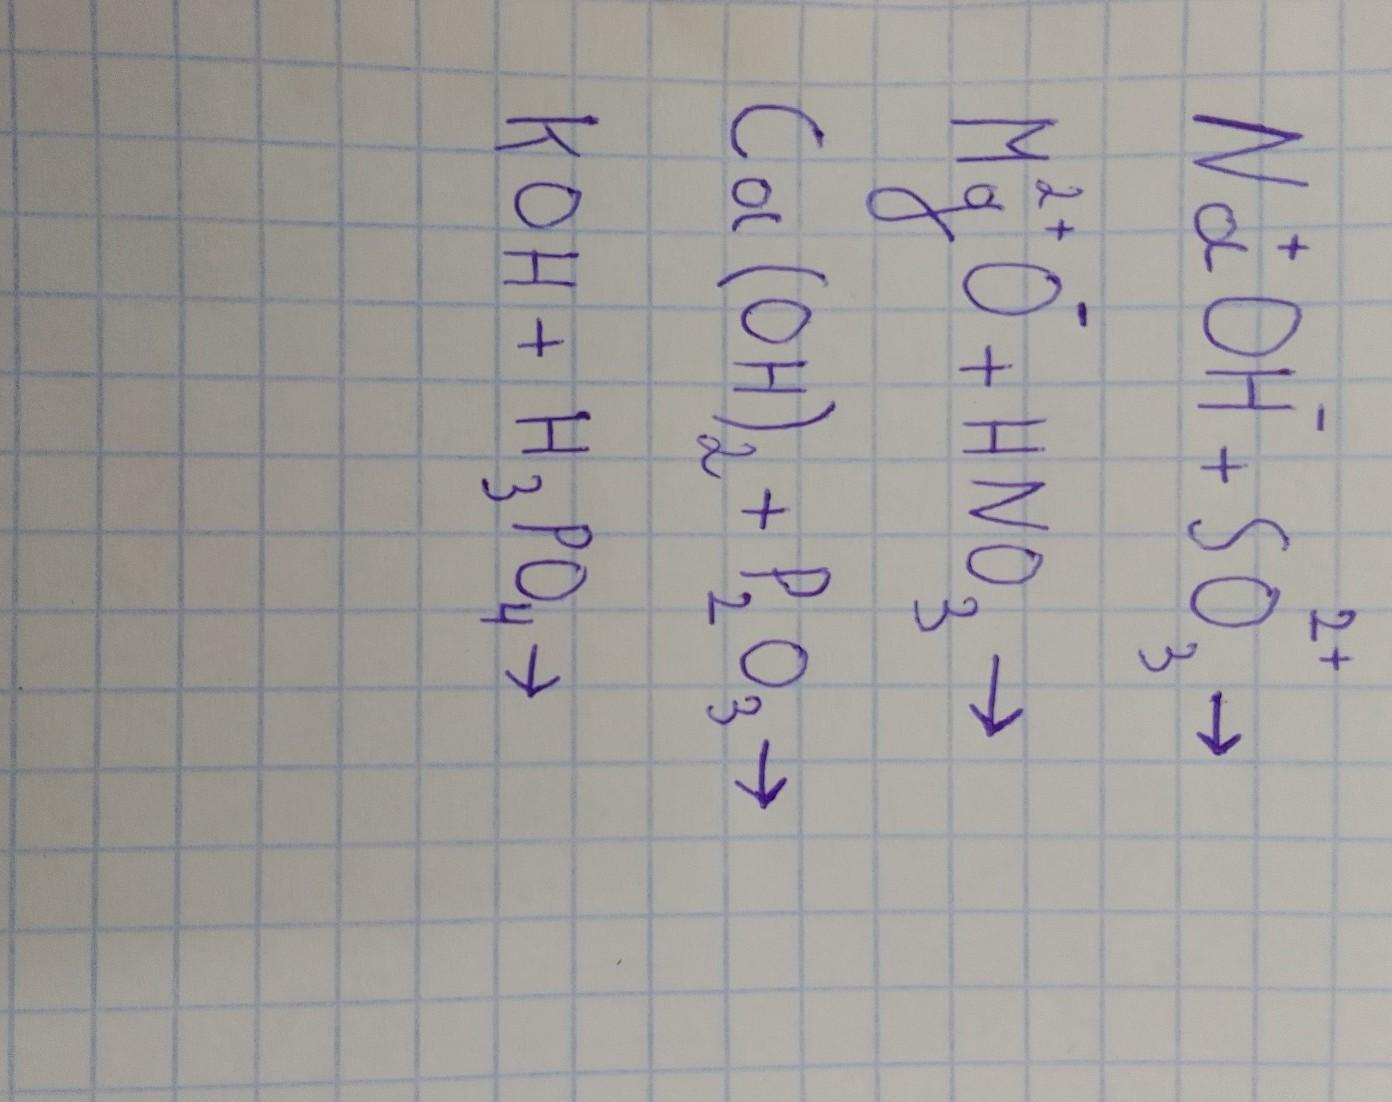 Na⁺OH⁻ + SO₃²⁺ →
Mg²⁺O⁻ + HNO₃ →
Ca(OH)₂ + P₂O₃ →
KOH + H₃PO₄ →